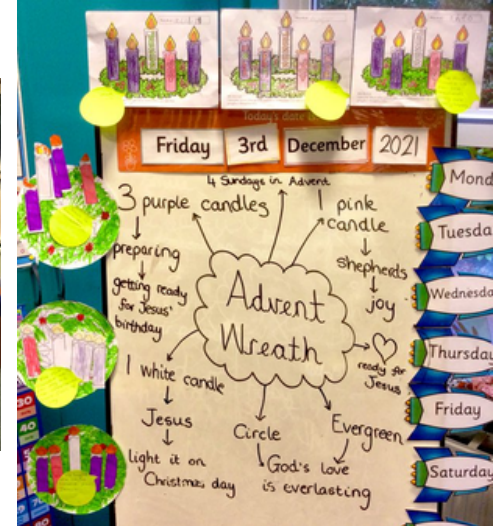 Today's date
Friday 3rd December 2021
4 Sundays in Advent
3 purple candles
preparing
getting ready
for Jesus'
birthday
1 pink
candle
shepherds
joy
Advent
Wreath
ready for
Jesus
1 white candle
Jesus
light it on
Christmas day
Circle
Evergreen
God's love
is everlasting
Mond
Tuesda
Wednesda
Thursda
Friday
Saturday
30